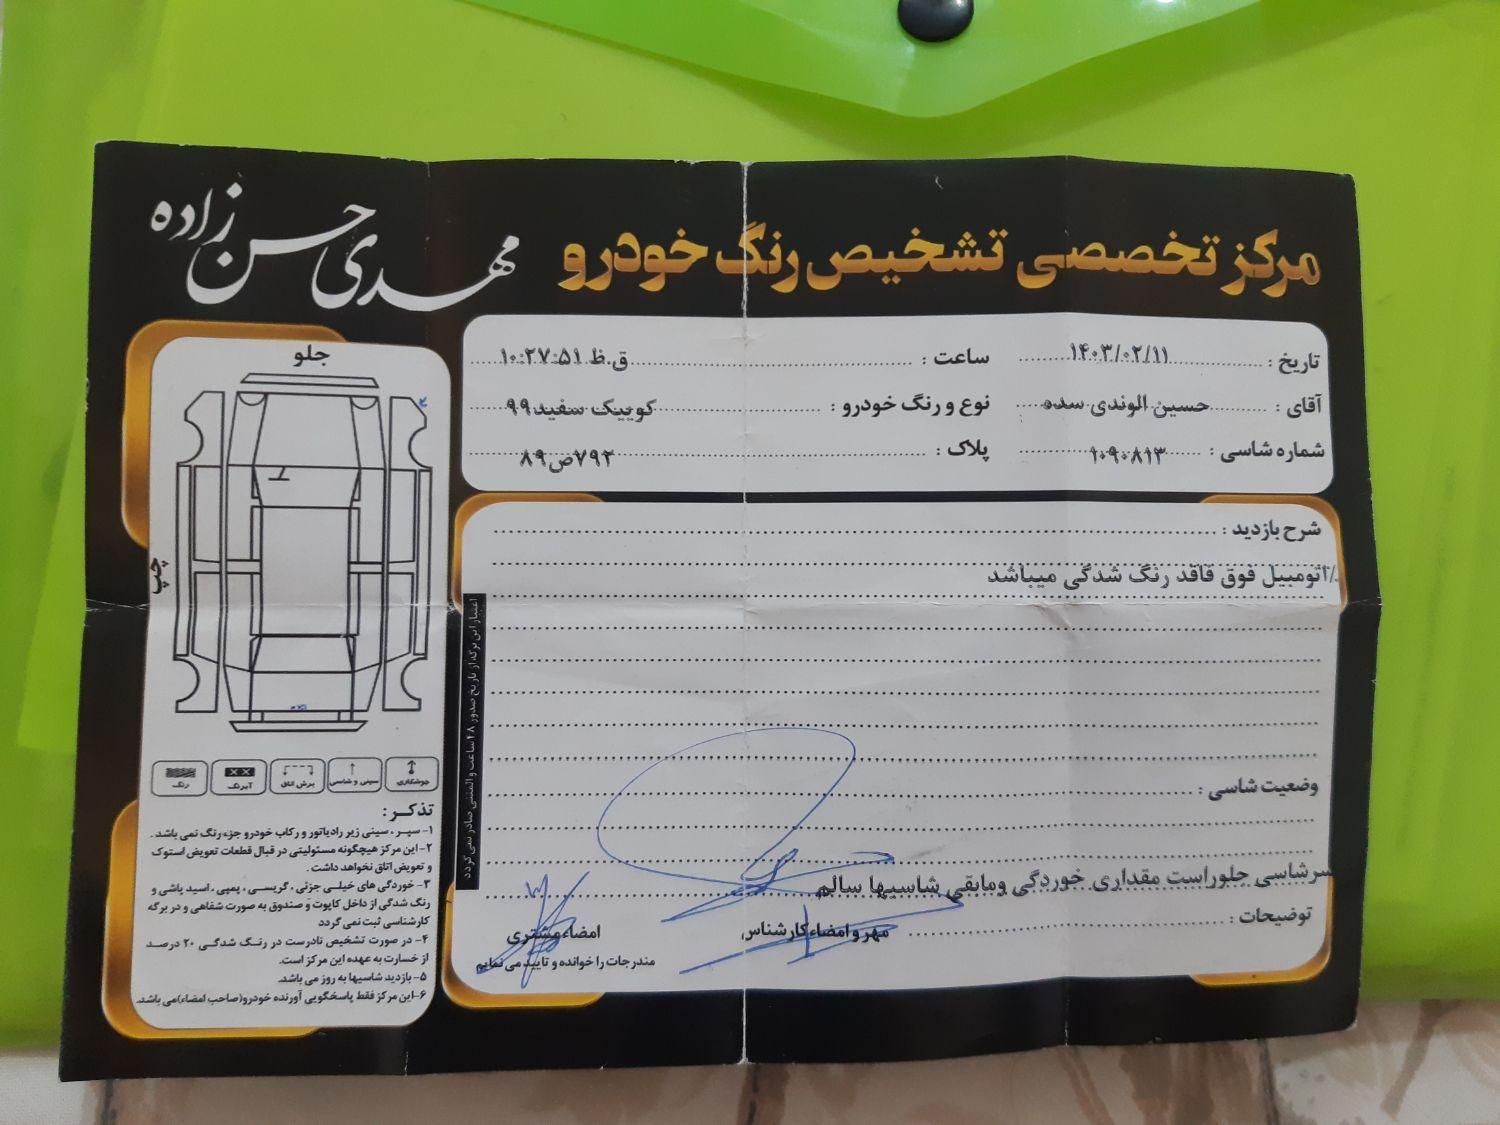 مرکز تخصصی تشخیص رنگ خودرو
مهدی حسن زاده
تاریخ : ۱۴۰۳/۰۲/۱۱
ساعت : ۱۰:۲۷:۵۱ ق.ظ
آقای : حسین الوندی سده
نوع و رنگ خودرو : کوییک سفید ۹۹
شماره شاسی : ۱۰۹۰۸۱۳
پلاک : ۷۹۲ص۸۹
شرح بازدید :
/اتومبیل فوق فاقد رنگ شدگی میباشد
وضعیت شاسی :
سرشاسی جلوراست مقداری خوردگی ومابقی شاسیها سالم
توضیحات :
مهر و امضاء کارشناس
امضاء مشتری
مندرجات را خوانده و تایید می نمایم
اعتبار این برگه از تاریخ صدور ۴۸ ساعت و المثنی صادر نمی گردد
جلو
چپ
جوشکاری
سینی و شاسی
برش اتاق
آبرنگ
رنگ
تذکر :
۱- سپر ، سینی زیر رادیاتور و رکاب خودرو جزء رنگ نمی باشد .
۲- این مرکز هیچگونه مسئولیتی در قبال قطعات تعویض استوک
و تعویض اتاق نخواهد داشت .
۳- خوردگی های خیلی جزئی ، گریسی ، پمپی ، اسید پاشی و
رنگ شدگی از داخل کاپوت و صندوق به صورت شفاهی و در برگه
کارشناسی ثبت نمی گردد
۴- در صورت تشخیص نادرست در رنگ شدگی ۲۰ درصد
از خسارت به عهده این مرکز است.
۵- بازدید شاسیها به روز می باشد.
۶-این مرکز فقط پاسخگویی آورنده خودرو(صاحب امضاء)می باشد.